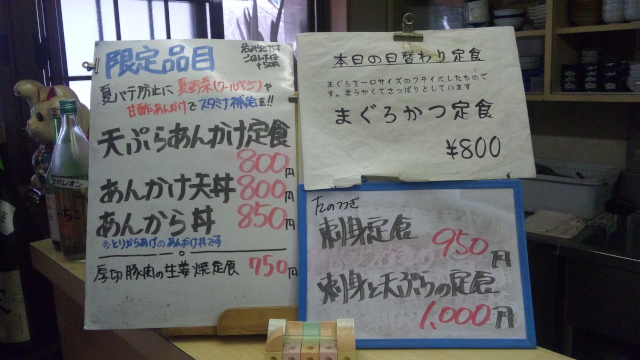 限定品目
+50円
夏バテ防止に夏野菜(クールベジ)や
甘酢あんかけでスタミナ補給を!!
天ぷらあんかけ定食
800円
あんかけ天丼 800円
あんから丼 850円
※とりからあげのあんかけ丼です
厚切豚肉の生姜焼定食 750円
本日の日替わり定食
まぐろを一口サイズのフライにしたもので
す。柔らかくてさっぱりとしています
まぐろかつ定食
¥800
たのつぎ
刺身定食 950円
刺身と天ぷらの定食
1,000円